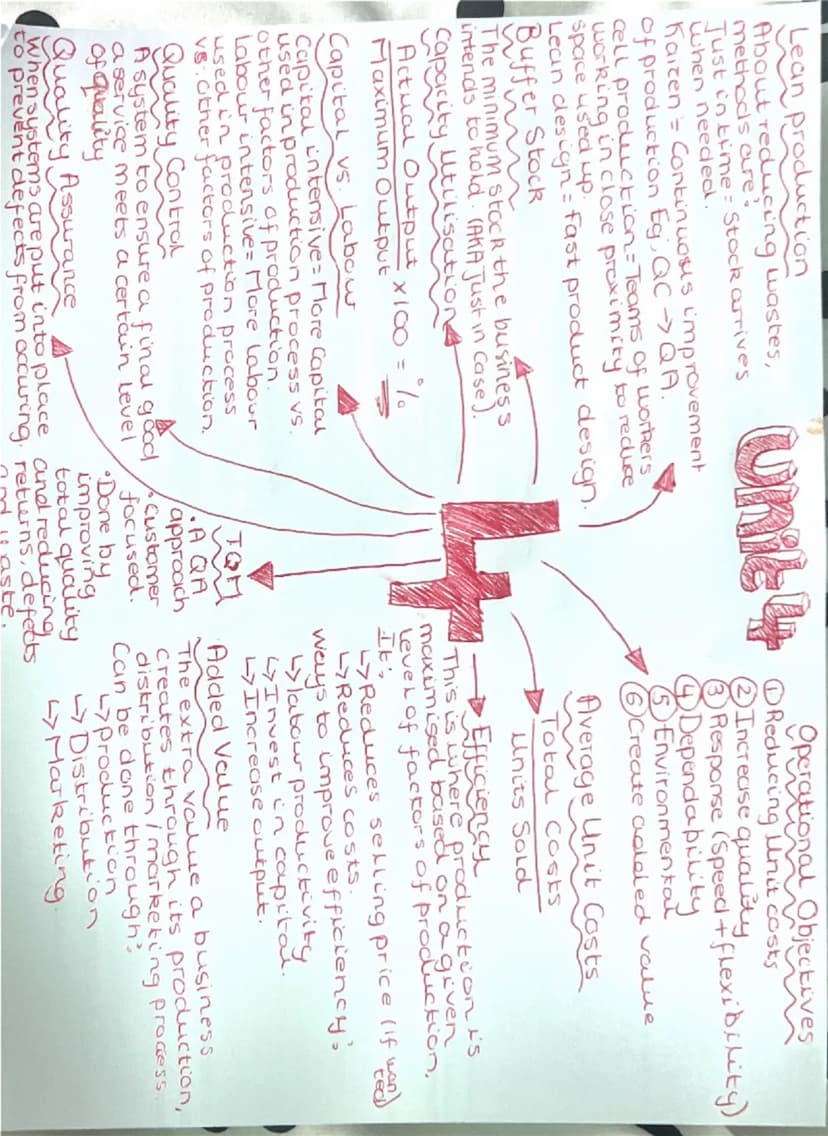 Unit 4
4
Lean production
About reducing wastes,
methods are:
Just in time = Stock arrives
when needed.
Kaizen = Continuous improvement
of production Eg; QC → QA.
cell production = Teams of workers
working in close proximity to reduce
space used up.
Lean design = fast product design.
Buffer Stock
The minimum stock the business
intends to hold. (AKA Just in Case)
Capacity Utilisation
Actual Output
Maximum Output
x 100 = %
Capital vs. Labour
Capital intensive = More Capital
used in production process vs.
other factors of production.
Labour intensive = More labour
used in production process
vs. other factors of production.
Quality Control
A system to ensure a final good
a service meets a certain level
of quality
Quality Assurance
When systems are put into place
to prevent defects from occuring.
TQM
· A QA
approach
· Customer
focused.
· Done by
improving
total quality
and reducing
returns, defects
and waste.
Operational Objectives
① Reducing Unit costs
② Increase quality
③ Response (Speed + flexibility)
④ Dependability
⑤ Environmental
⑥ Create added value
Average Unit Costs
Total Costs
Units Sold
Efficiency
This is where production is
maximised based on a given
level of factors of production.
It;
↳ Reduces selling price (if wanted)
↳ Reduces costs.
Ways to improve efficiency:
↳ labour productivity
↳ Invest in capital.
↳ Increase output.
Added Value
The extra value a business
creates through its production,
distribution / marketing process.
Can be done through:
↳ production
↳ Distribution
↳ Marketing.